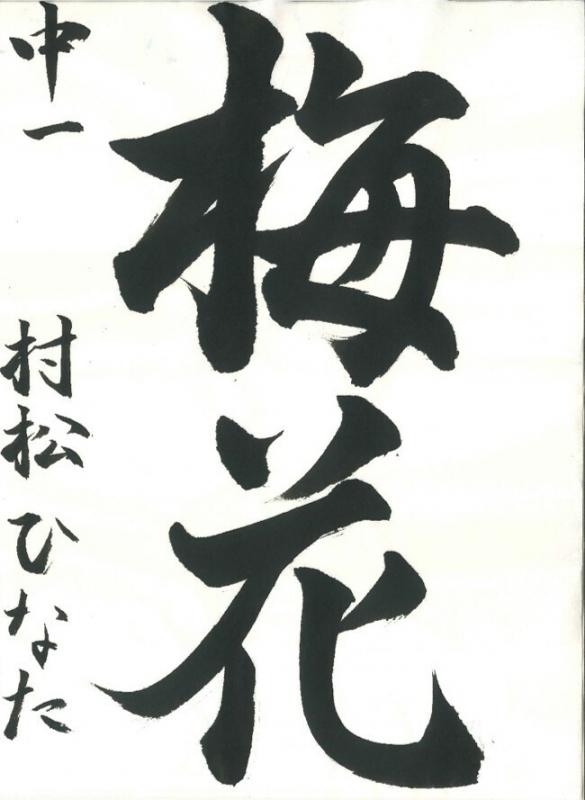 梅花
中一 村松ひなた